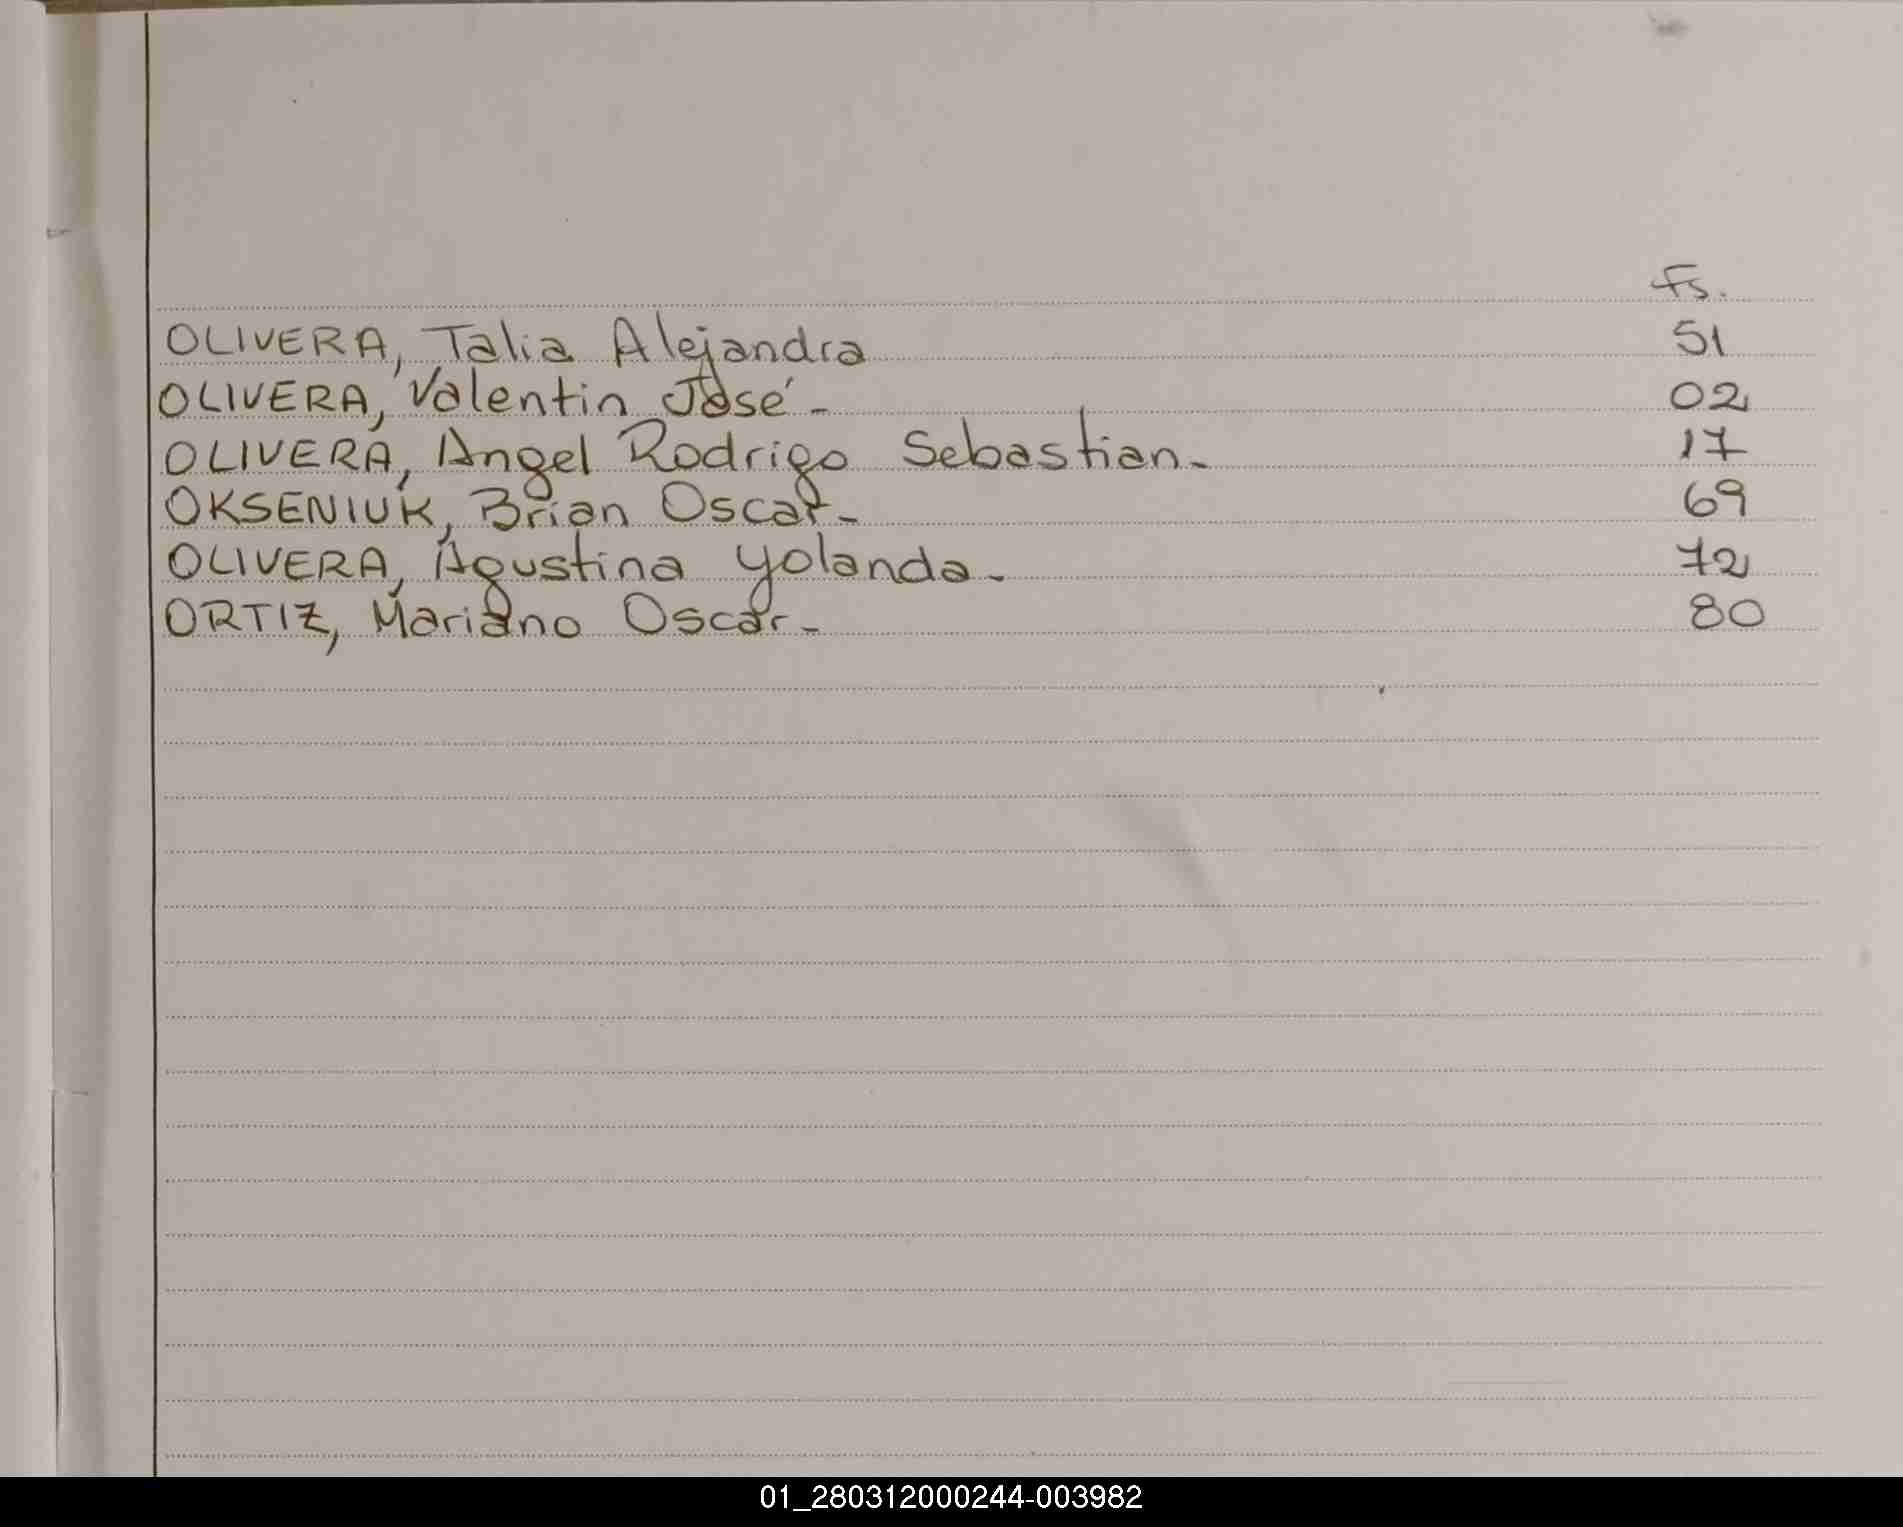 Fs.
OLIVERA, Talia Alejandra 51
OLIVERA, Valentin José.- 02
OLIVERA, Angel Rodrigo Sebastian.- 17
OKSENIUK, Brian Oscar.- 69
OLIVERA, Agustina Yolanda.- 72
ORTIZ, Mariano Oscar.- 80
01_280312000244-003982